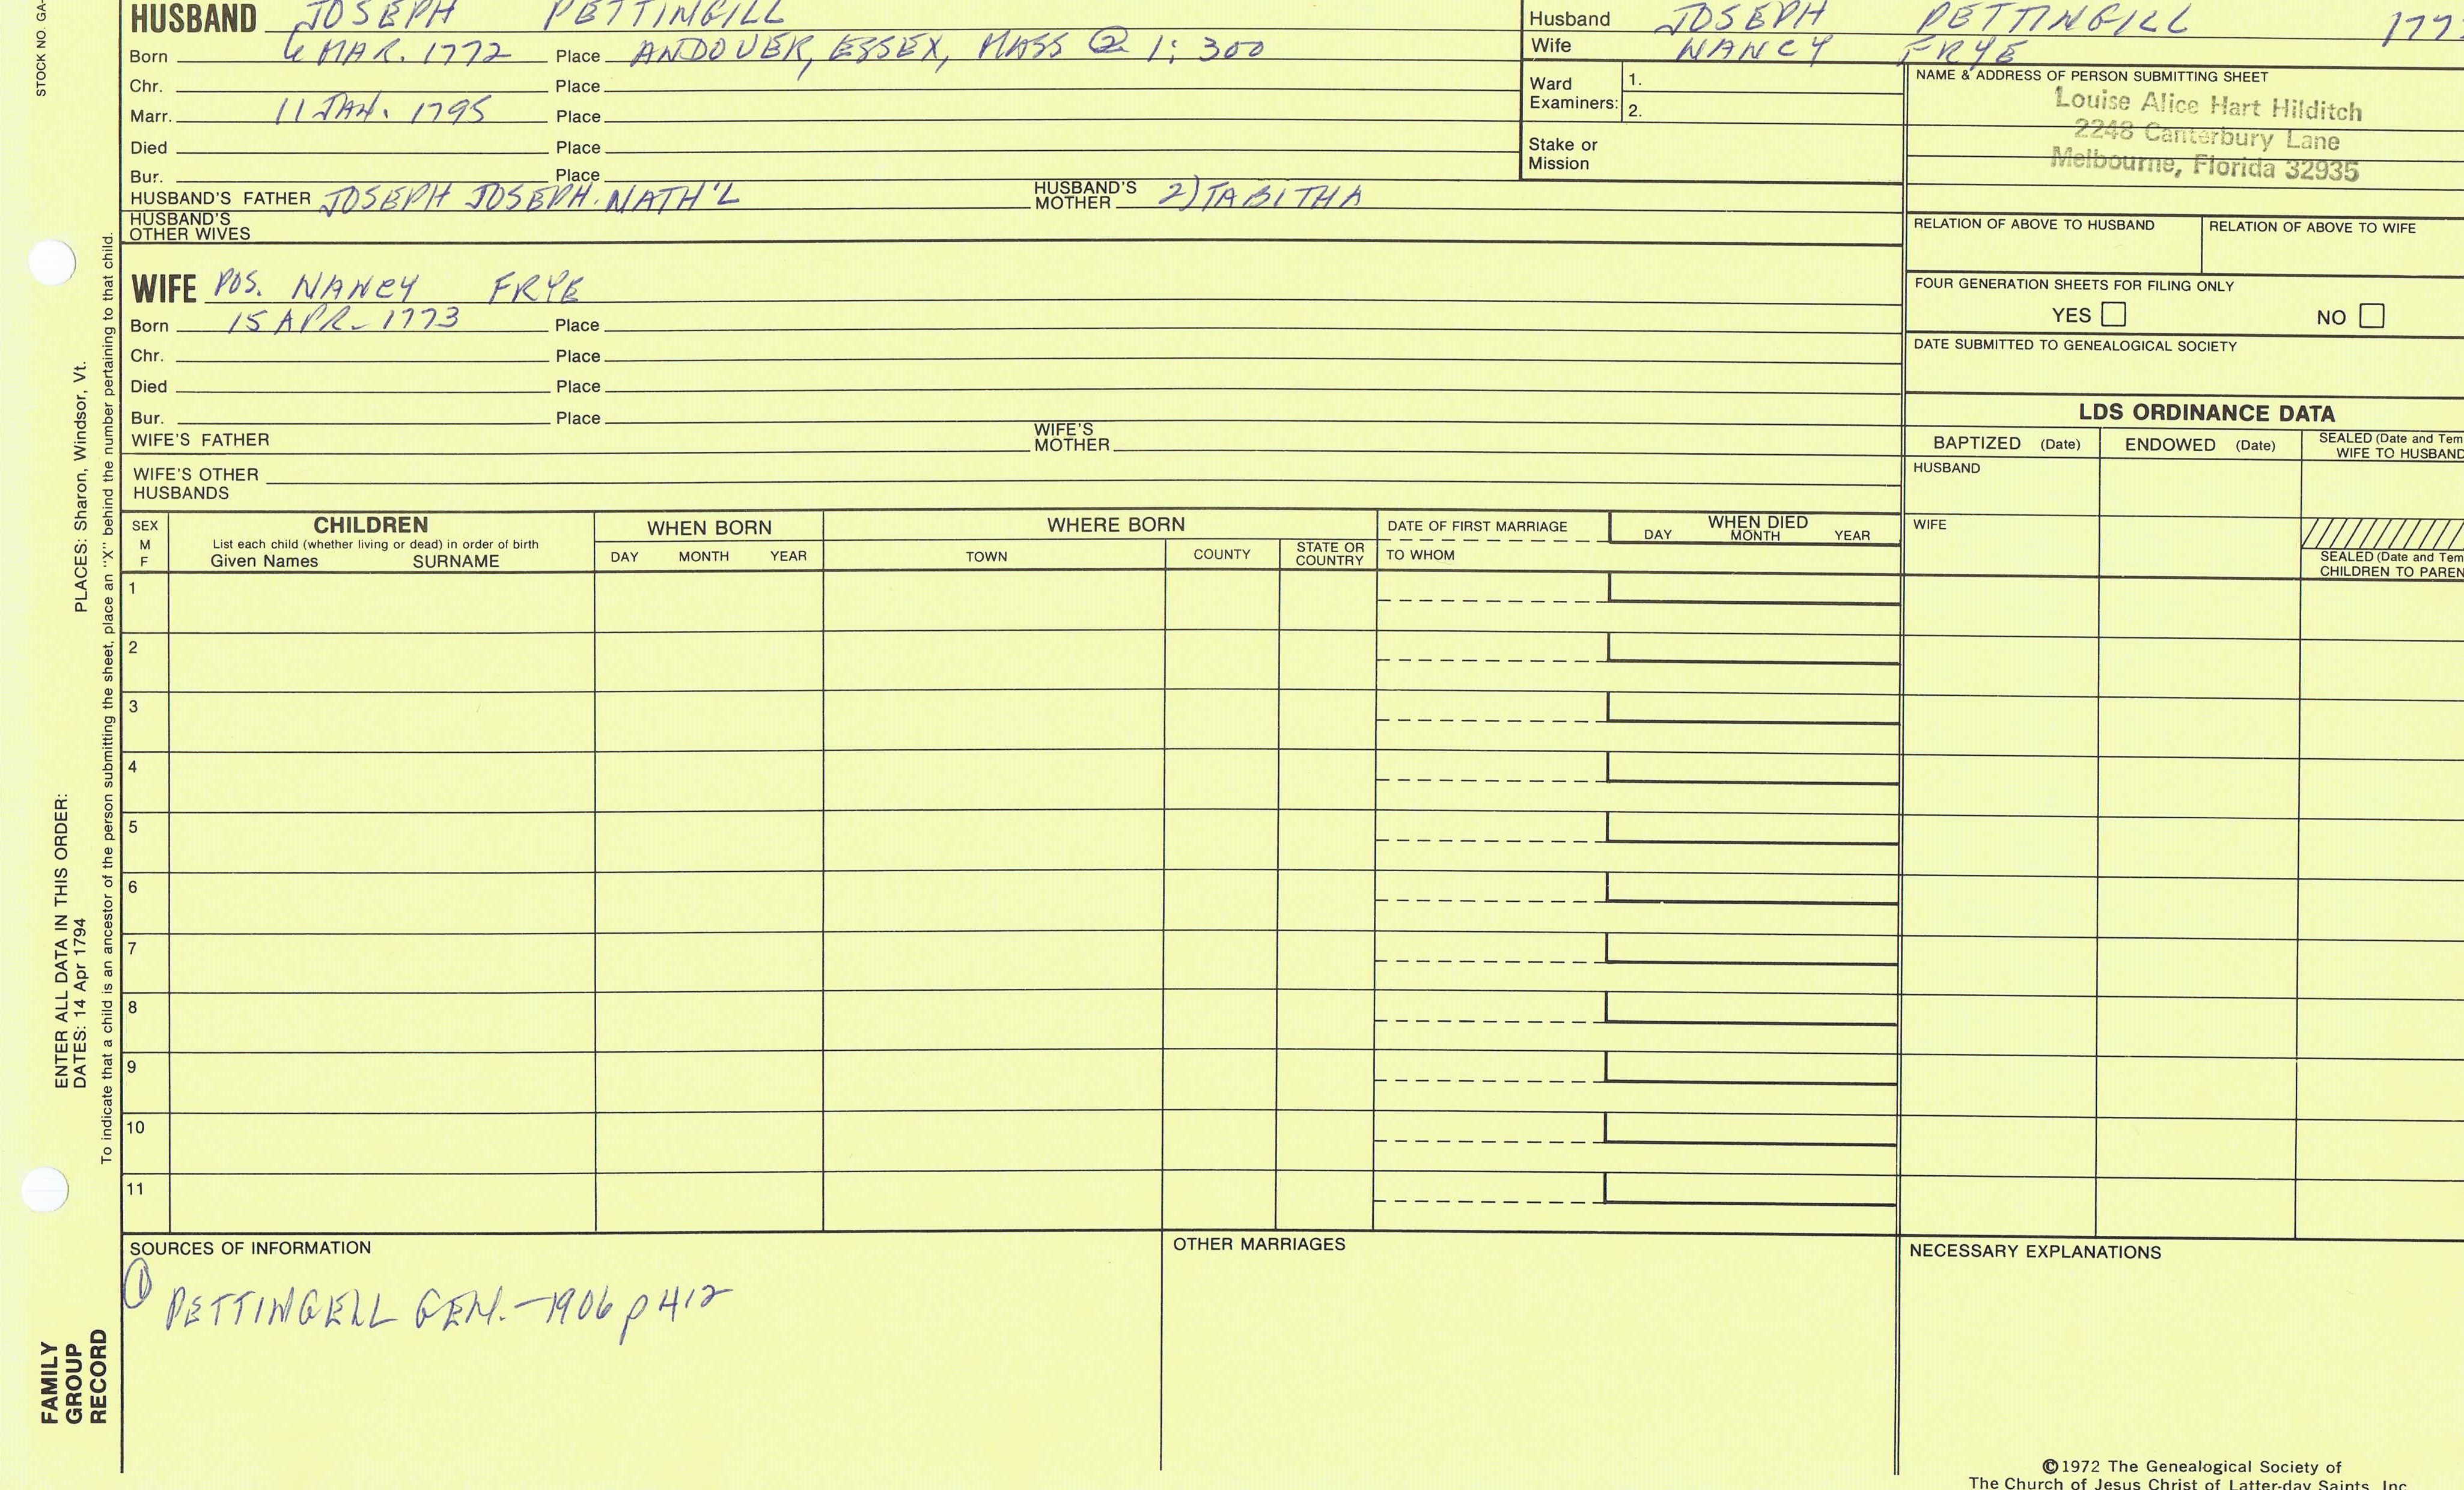 HUSBAND JOSEPH PETTINGILL
Born 6 MAR. 1772 Place ANDOVER, ESSEX, MASS @ 1; 300
Chr. Place
Marr. 11 JAN. 1795 Place
Died Place
Bur. Place
HUSBAND'S FATHER JOSEPH JOSEPH. NATH'L HUSBAND'S MOTHER 2) TABITHA
HUSBAND'S OTHER WIVES
WIFE POS. NANCY FRYE
Born 15 APR. 1773 Place
Chr. Place
Died Place
Bur. Place
WIFE'S FATHER WIFE'S MOTHER
WIFE'S OTHER HUSBANDS
Husband JOSEPH PETTINGILL
Wife NANCY FRYE
Ward Examiners: 1.
2.
Stake or Mission
NAME & ADDRESS OF PERSON SUBMITTING SHEET
Louise Alice Hart Hilditch
2248 Canterbury Lane
Melbourne, Florida 32935
RELATION OF ABOVE TO HUSBAND RELATION OF ABOVE TO WIFE
FOUR GENERATION SHEETS FOR FILING ONLY
YES NO
DATE SUBMITTED TO GENEALOGICAL SOCIETY
LDS ORDINANCE DATA
BAPTIZED (Date) ENDOWED (Date) SEALED (Date and Tem
WIFE TO HUSBAND
HUSBAND
WIFE
SEALED (Date and Tem
CHILDREN TO PAREN
SEX
M
F
CHILDREN
List each child (whether living or dead) in order of birth
Given Names SURNAME
WHEN BORN
DAY MONTH YEAR
WHERE BORN
TOWN COUNTY STATE OR COUNTRY
DATE OF FIRST MARRIAGE
TO WHOM
WHEN DIED
DAY MONTH YEAR
1
2
3
4
5
6
7
8
9
10
11
SOURCES OF INFORMATION
① PETTINGELL GEN. - 1906 p 412
OTHER MARRIAGES
NECESSARY EXPLANATIONS
©1972 The Genealogical Society of
The Church of Jesus Christ of Latter-day Saints, Inc
STOCK NO. GA-
PLACES: Sharon, Windsor, Vt.
ENTER ALL DATA IN THIS ORDER:
DATES: 14 Apr 1794
To indicate that a child is an ancestor of the person submitting the sheet, place an "X" behind the number pertaining to that child.
FAMILY
GROUP
RECORD